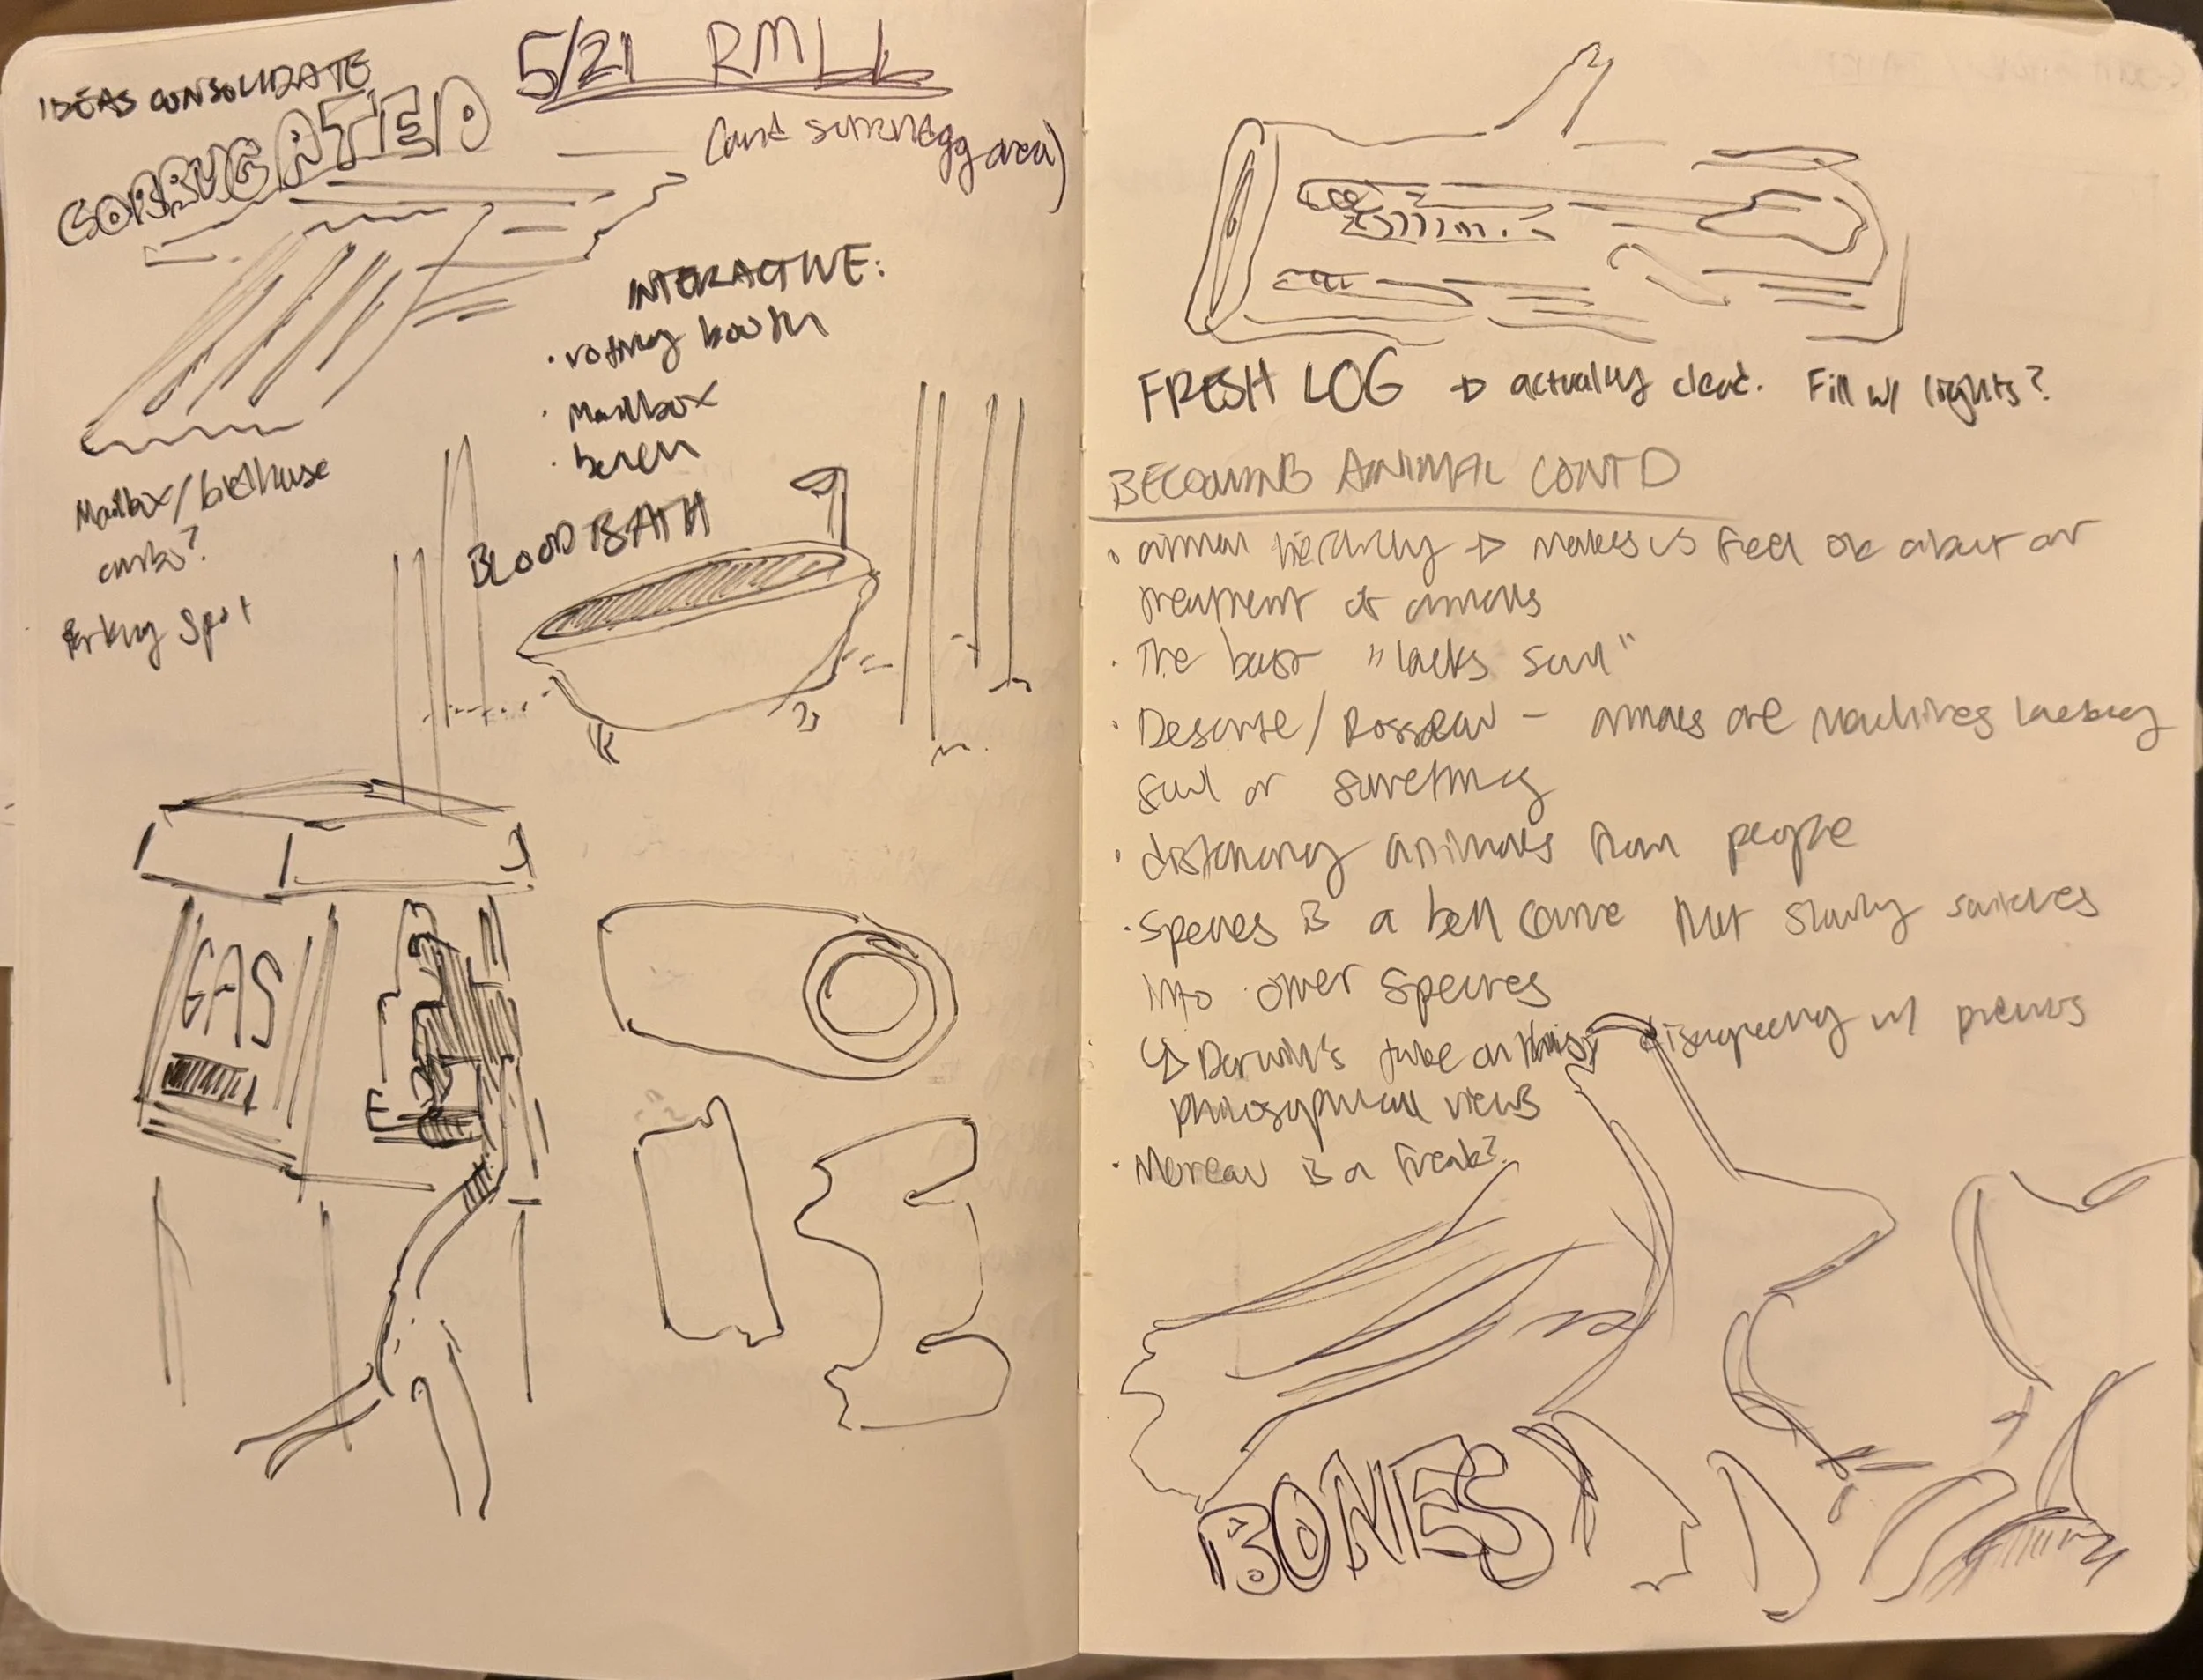 IDEAS CONSOLIDATE
CORRUGATED
5/21 RMLL
(and area)
INTERACTIVE:
· voting booth
· Mailbox
· bench
Mailbox/birdhouse
Parking Spot
BLOOD BATH
GAS
FRESH LOG → actually dead. Fill w/ lights?
BECOMING ANIMAL CONT D
· animal hierarchy → makes us feel ok about our
treatment of animals
· The beast "lacks soul"
· Descarte / Rosseau - animals are machines lacking
soul or something
· distancing animals from people
· Species is a bell curve that slowly switches
into other species
↳ Darwin's take on this, disagreeing w/
philosophical views
· Moreau is a freak?
BONES